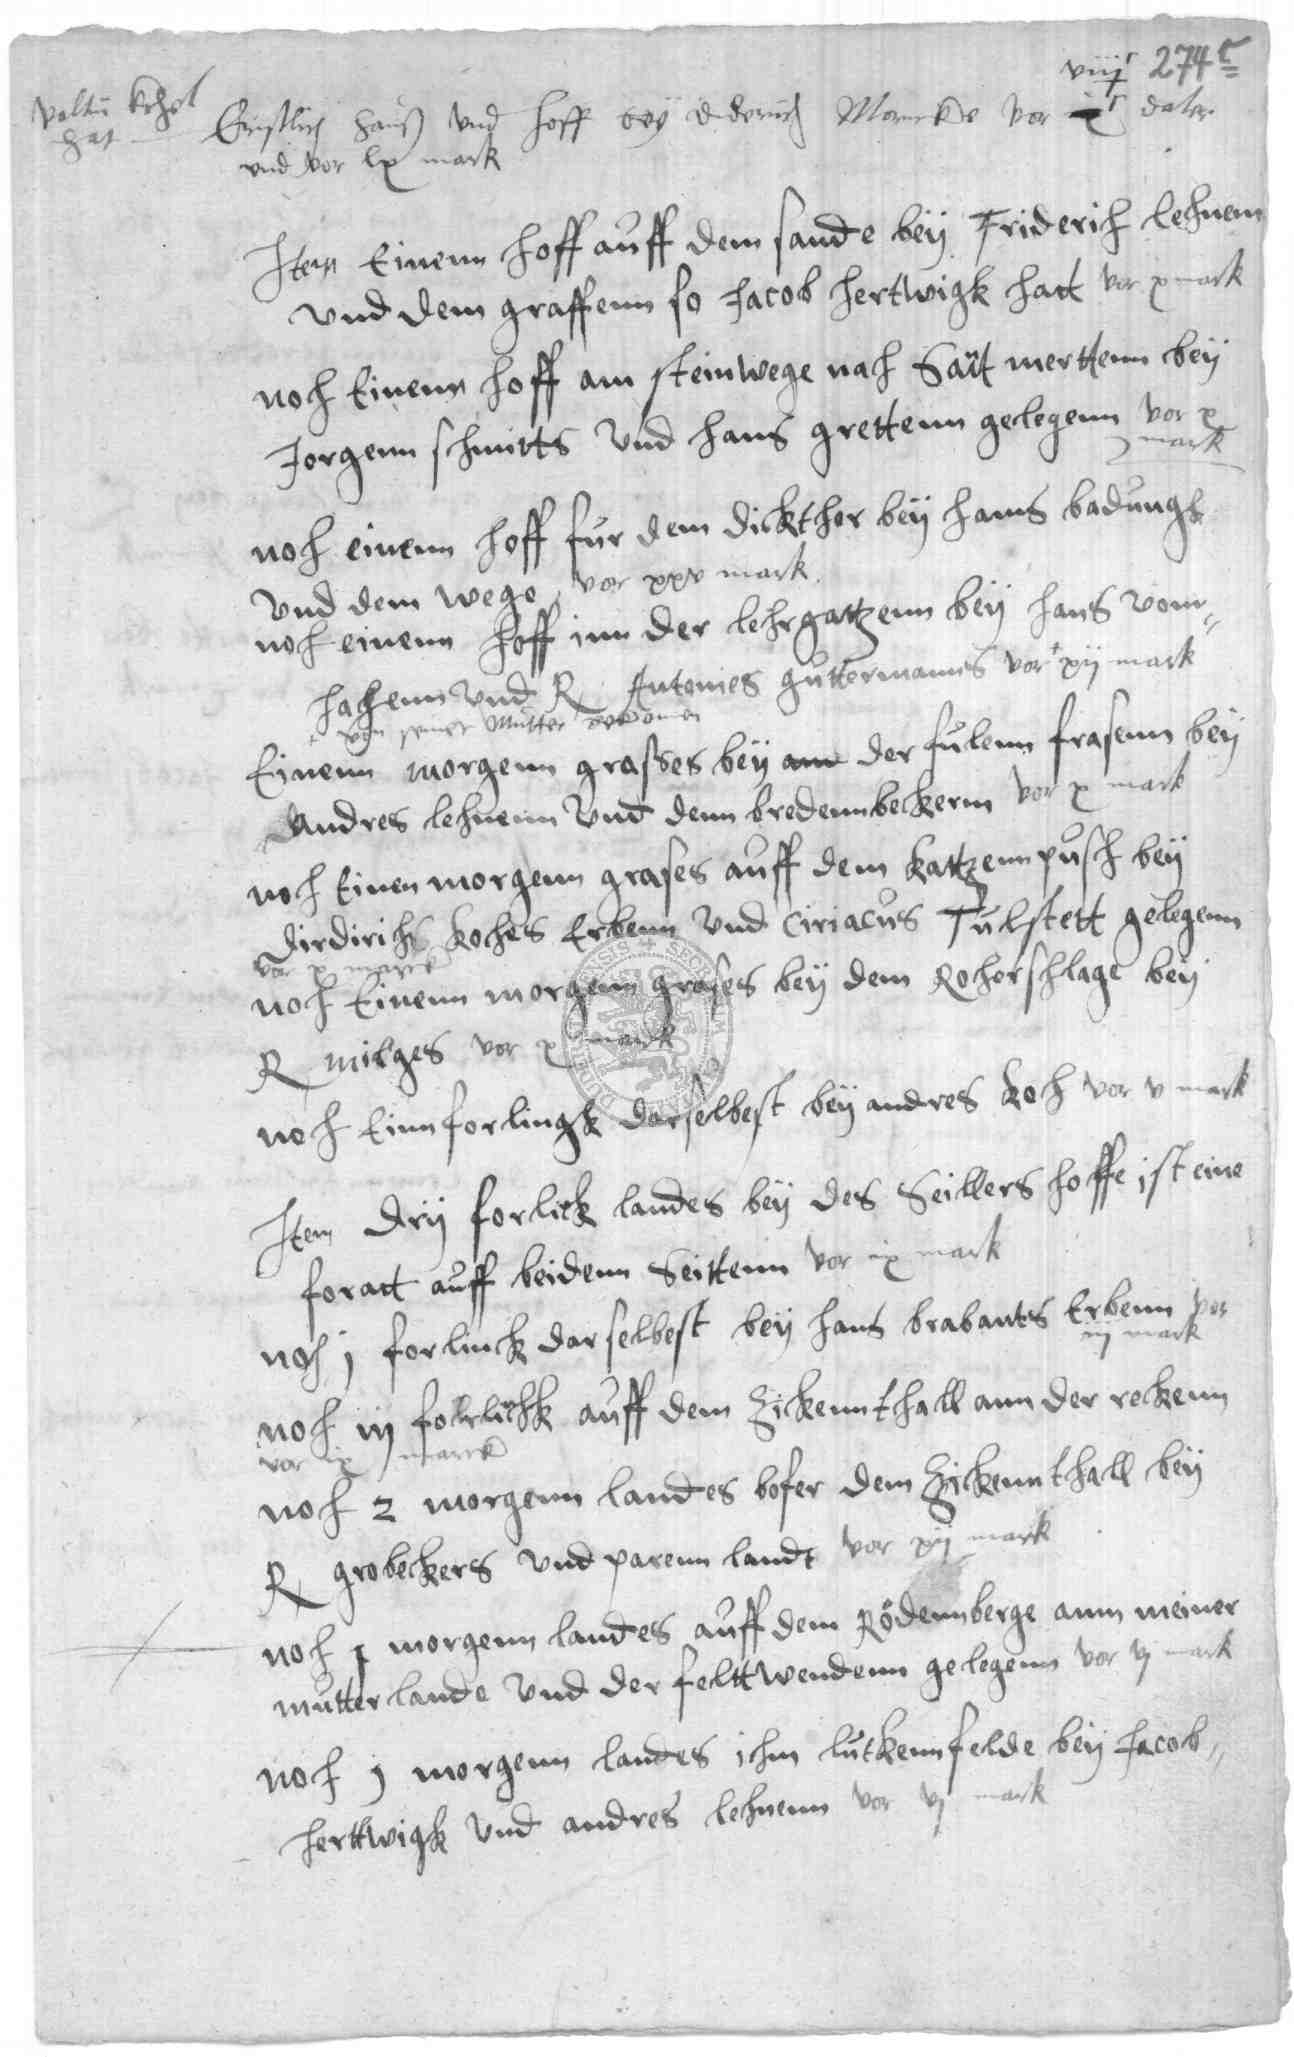 viiijc 274r
Valtin Kehol
hat
Erstlich hauß vnd hoff bey diderich Marckte vor daler
vnd vor lx mark
Item Einenn hoff auff dem sande beÿ Friderich lehnenn
vnd dem graffenn so Jacob hertwigk hatt vor x mark
noch Einenn hoff am steinwege nach Sant merttenn beÿ
Jorgenn schmitts vnd hans grettenn gelegenn vor x
mark
noch einenn hoff fur dem dickthor beÿ hans badungk
vnd dem wege vor xxv mark
noch einenn hoff inn der lehrgatzenn beÿ hans vonn
hachenn vnd R Antonies guttermanns vor + xij mark
+ von seiner mutter
Einenn morgenn grasses beÿ der fulenn frasenn beÿ
Andres lehnenn vnd denn bredennbeckerm vor x mark
noch Einen morgenn grases auff dem kattzennpusch beÿ
Dirdirichs koches Erbenn vnd Ciriacus Tulstett gelegenn
vor x marck
noch Einenn morgenn grases beÿ dem Rohorschlage beÿ
R milges vor x mark
noch Einn forlingk darselbest beÿ andres koch vor v mark
Item drij forlick landes beÿ des Seillers hoffe ist eine
foratt auff beidenn Seittenn vor ix mark
noch j forlinck darselbest beÿ hans brabants Erbenn vor
iij mark
noch iij forlick auff dem Zickennthall ann der reckenn
vor ix marck
noch 2 morgenn landes bofer dem Zickennthall beÿ
R grobeckers vnd parenn landt vor xij mark
noch j morgenn landes auff dem Rödennberge ann meiner
mutter lande vnd der felttwendenn gelegenn vor vj mark
noch j morgenn landes ihm lutkennfelde beÿ Jacob
herttwigk vnd andres lehnenn vor vj mark